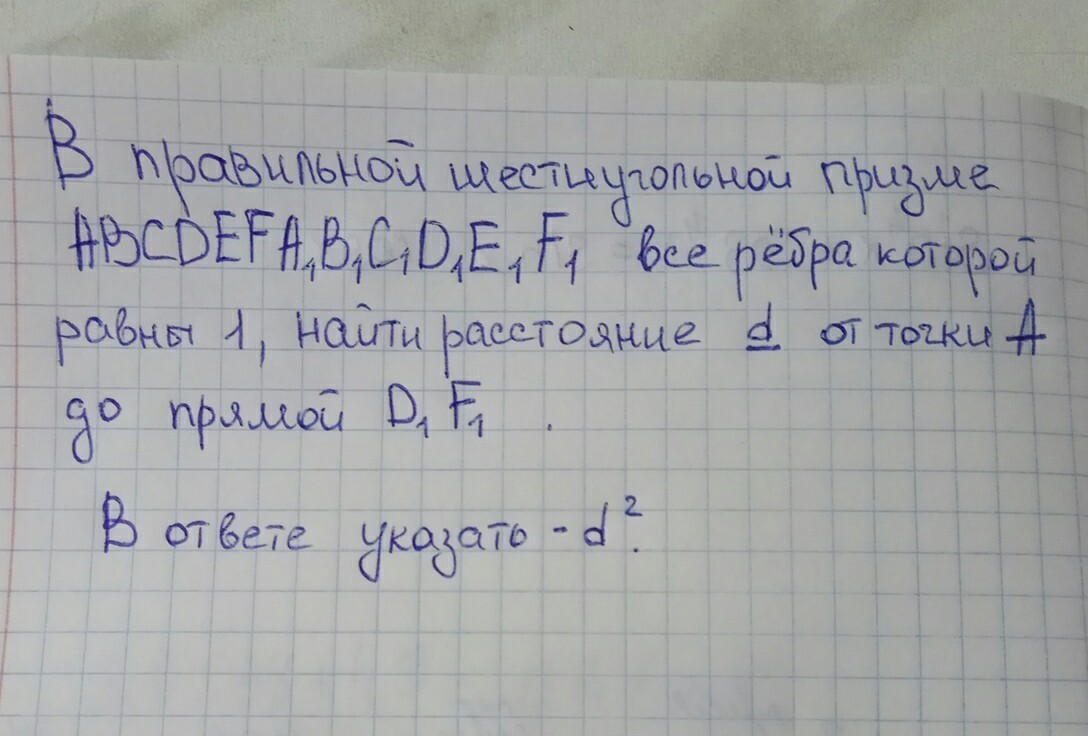 В правильной шестиугольной призме
ABCDEFA₁B₁C₁D₁E₁F₁ все рёбра которой
равны 1, найти расстояние d от точки A
до прямой D₁F₁ .
В ответе указать - d².